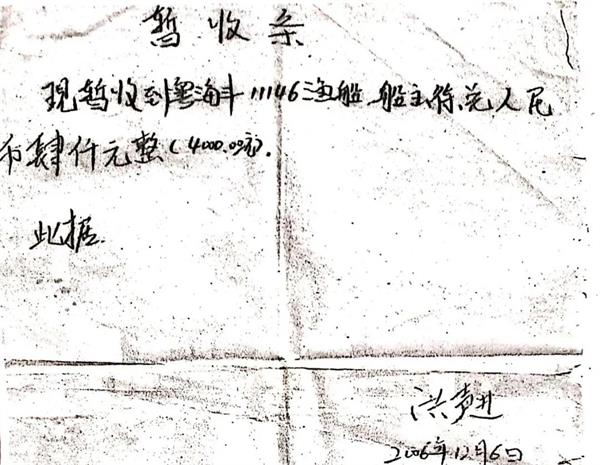 暂收条
现暂收到粤海斗11146渔船船主符兰人民
币肆仟元整(4000.00元).
此据.
洪
2006年12月6日